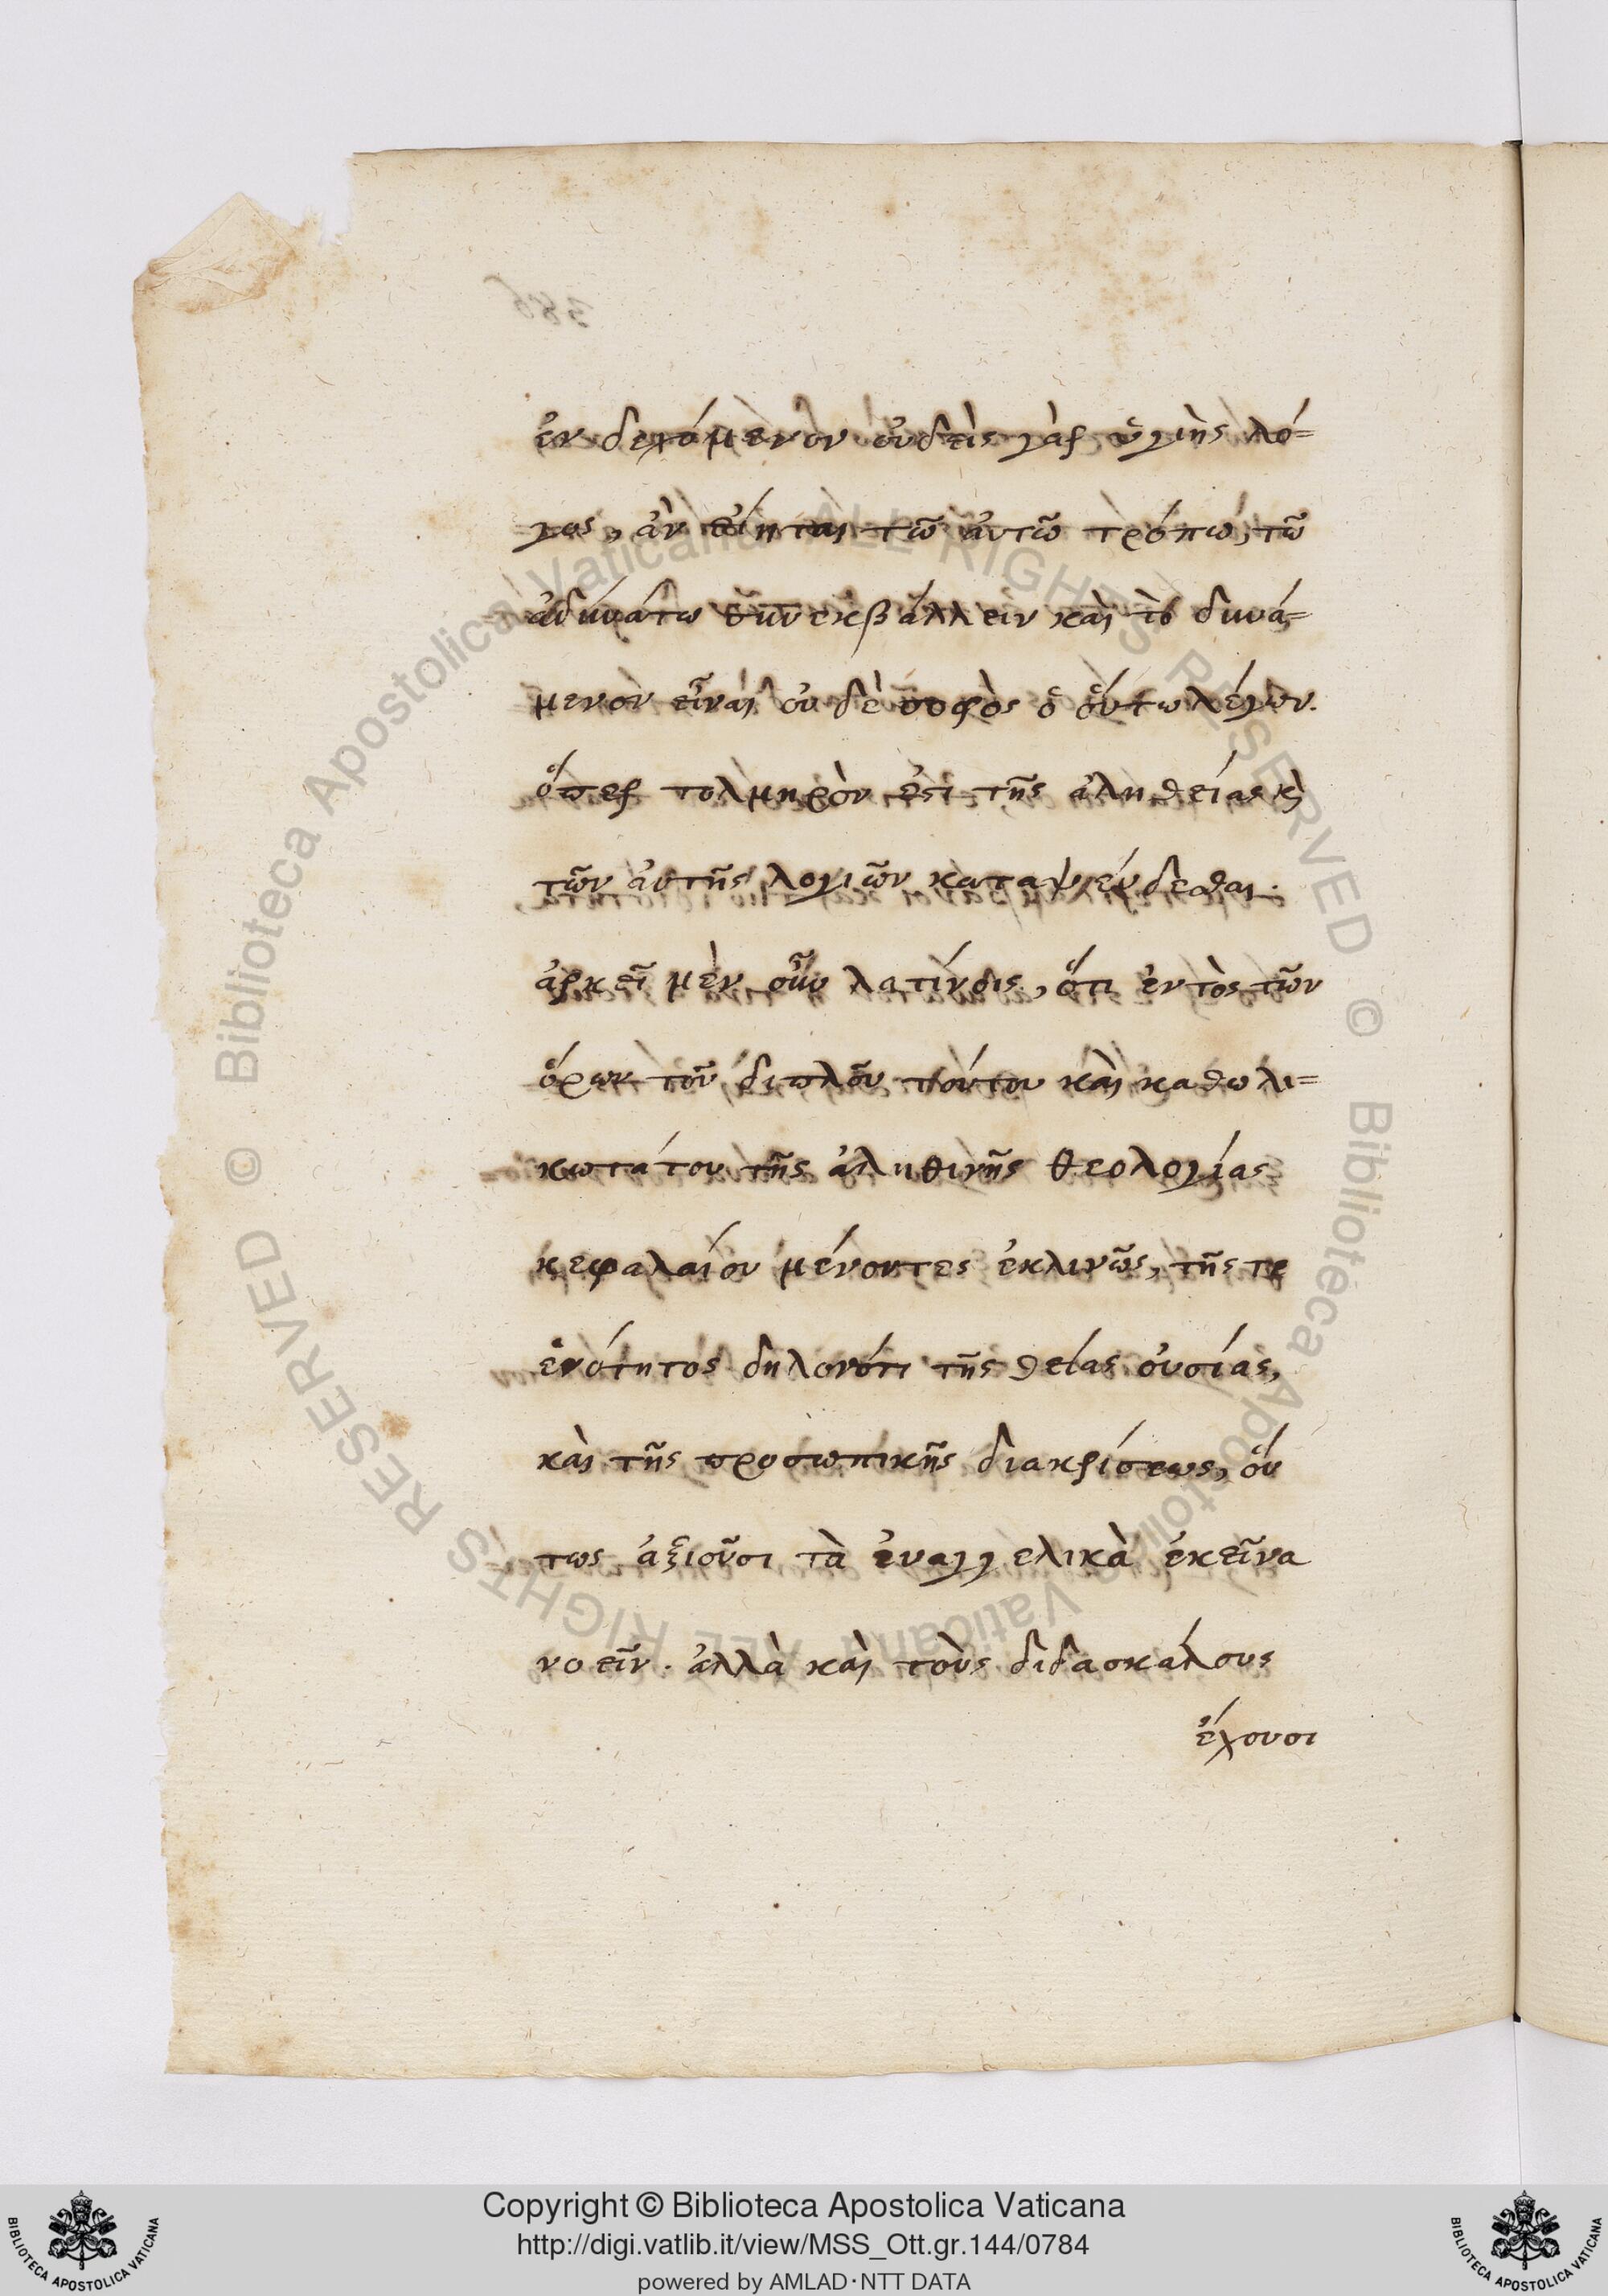 ἐνδεχόμενον οὐδεὶς γὰρ ὑγιὴς λό=
γος, ἀν τῶ αὐτῶ τρόπω, τῶ
ἀδυνάτω συνεκβάλλειν καὶ τὸ δυνά=
μενον εἶναι οὐδὲ σοφὸς ὁ οὕτω λέγων.
ὅπερ τολμηρόν ἐστι τῆς ἀληθείας κὶ
τῶν αὐτῆς λογιῶν καταψεύδεσθαι.
ἀρκεῖ μὲν οὖν λατίνοις, ὅτι ἐντὸς τῶν
ὅρων τοῦ διπλοῦ τούτου καὶ καθωλι=
κωτάτου τῆς ἀληθινῆς θεολογίας
κεφαλαίου μένοντες ἐκλινῶς, τῆς τε
ἑνότητος δηλονότι τῆς θείας οὐσίας,
καὶ τῆς προσωπικῆς διακρίσεως, οὕ
τως ἀξιοῦσι τὰ ἐυαγγελικὰ ἐκεῖνα
νοεῖν. ἀλλὰ καὶ τοὺς διδασκάλους
ἔχουσι
© Biblioteca Apostolica Vaticana ALL RIGHTS RESERVED © Biblioteca Apostolica Vaticana ALL RIGHTS RESERVED
Copyright © Biblioteca Apostolica Vaticana
http://digi.vatlib.it/view/MSS_Ott.gr.144/0784
powered by AMLAD·NTT DATA
BIBLIOTECA APOSTOLICA VATICANA
BIBLIOTECA APOSTOLICA VATICANA